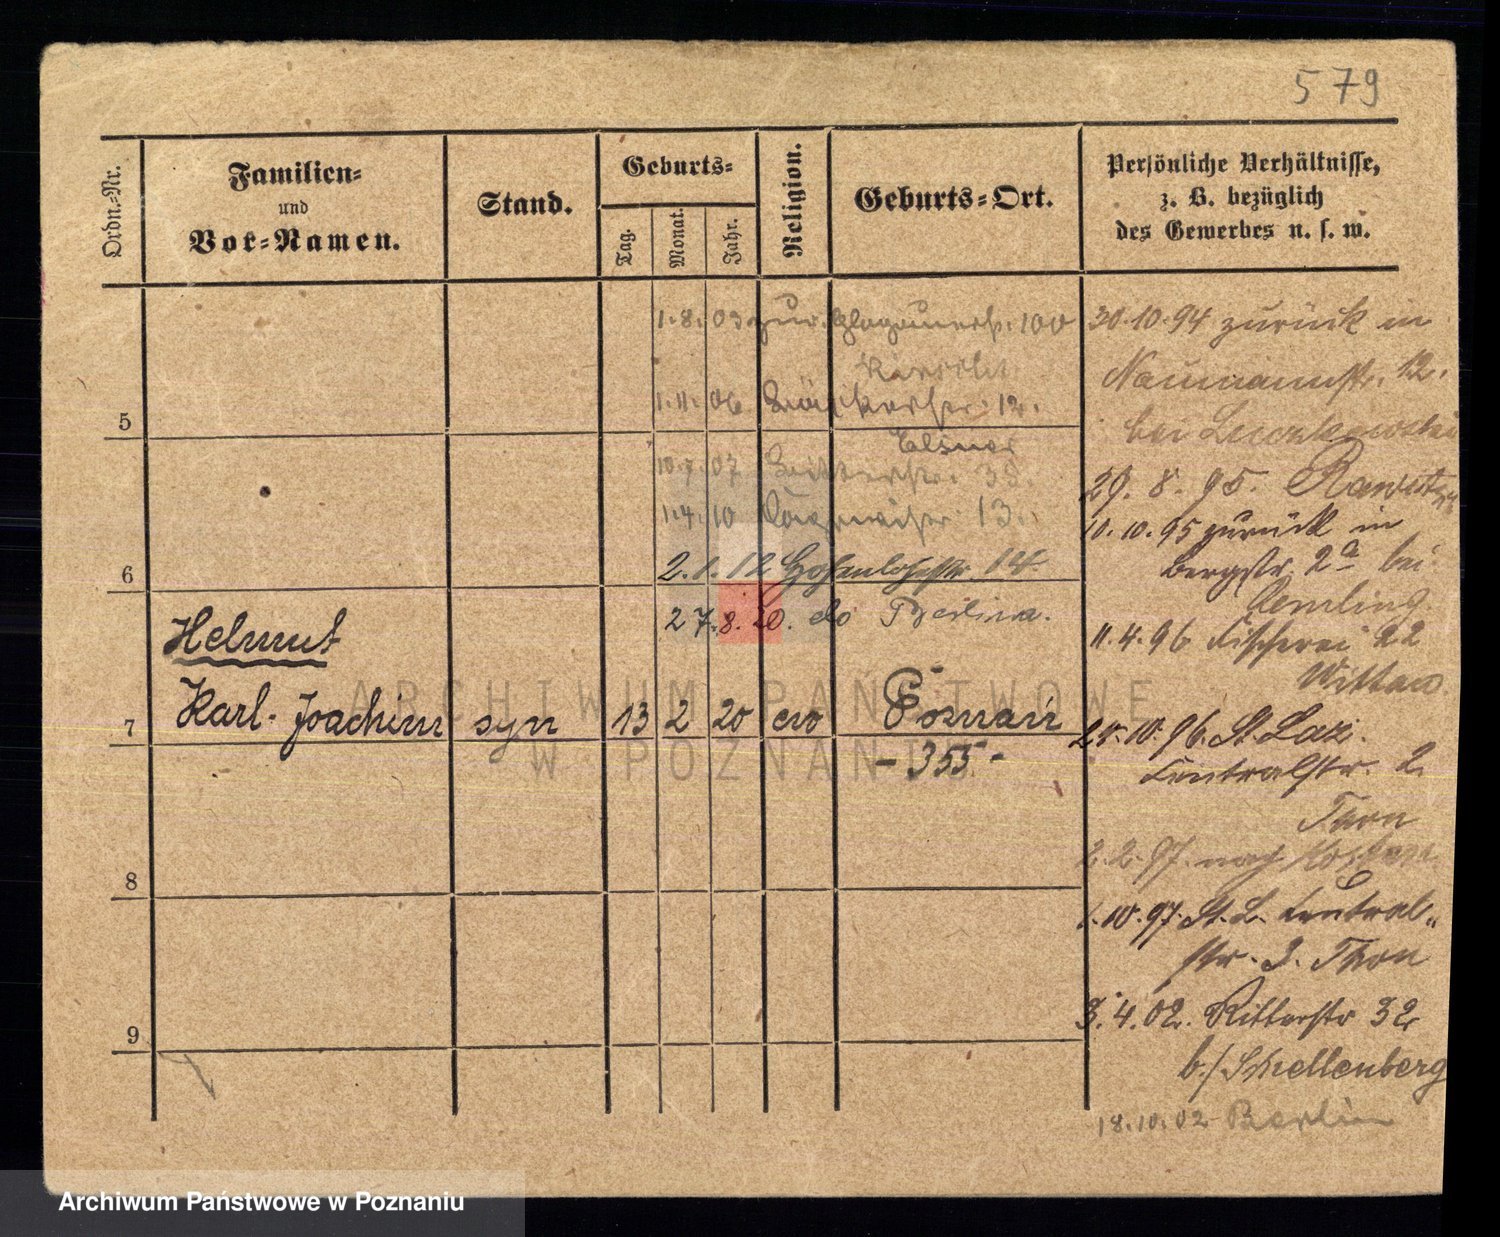 579
Ordn.-Nr.
Familien-
und
Vor-Namen.
Stand.
Geburts-
Tag.
Monat.
Jahr.
Religion.
Geburts-Ort.
Persönliche Verhältnisse,
z. B. bezüglich
des Gewerbes u. s. w.
1.8.03 zur. Glogauerstr. 100
1.11.06 12.
5
Elsner
10.7.07 Ritterstr. 35.
1.4.10 13.
6
2.1.12 Hohenlohestr. 14
27.8.20. do Berlina.
Helmut
7
Karl-Joachim syn 13 2 20 ew Poznań
- 355 -
8
9
30.10.94 zurück in
Naumannstr. 12.
bei
29.8.95. Rawitsch
10.10.95 zurück in
Bergstr. 2a bei
Remling
11.4.96 Fischerei 22
Wittaw
10.96. St. Laz.
Centralstr. 2.
Thon
2.2.97. nach
1.10.97. St. L. Central-
str. 2. Thon
3.4.02. Ritterstr 32
b./Schellenberg
18.10.02 Berlin
ARCHIWUM PAŃSTWOWE
W POZNANIU
Archiwum Państwowe w Poznaniu